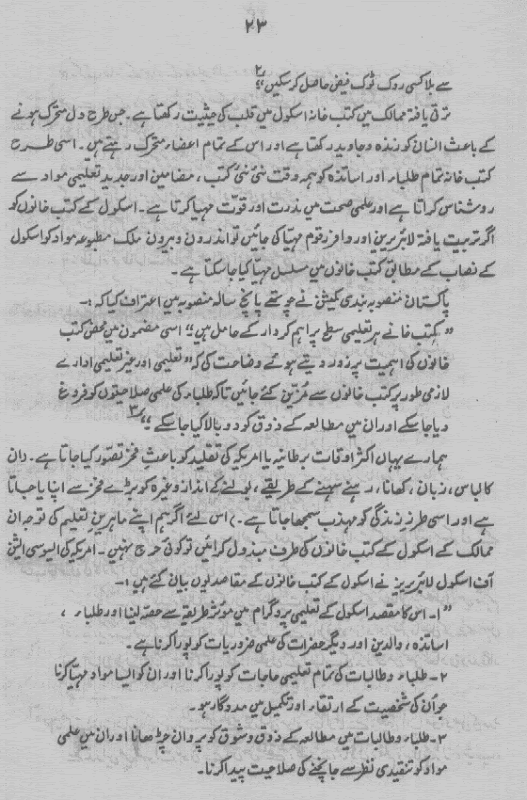 ۲۳
سے بلا کسی روک ٹوک فیض حاصل کر سکیں"۲
ترقی یافتہ ممالک میں کتب خانہ اسکول میں قلب کی حیثیت رکھتا ہے۔ جس طرح دل متحرک ہونے
کے باعث انسان کو زندہ و جاوید رکھتا ہے اور اس کے تمام اعضاء متحرک رہتے ہیں۔ اسی طرح
کتب خانہ تمام طلباء اور اساتذہ کو ہمہ وقت نئی نئی کتب، مضامین اور جدید تعلیمی مواد سے
روشناس کراتا ہے اور علمی صحت میں ندرت اور قوت مہیا کرتا ہے۔ اسکول کے کتب خانوں کو
اگر تربیت یافتہ لائبریرین اور وافر رقوم مہیا کی جائیں تو اندرون و بیرون ملک مطبوعہ مواد کو اسکول
کے نصاب کے مطابق کتب خانوں میں مسلسل مہیا کیا جا سکتا ہے۔
پاکستان منصوبہ بندی کمیشن نے چوتھے پانچ سالہ منصوبہ میں اعتراف کیا کہ :۔
"کتب خانے ہر تعلیمی سطح پر اہم کردار کے حامل ہیں" اسی مضمون میں محض کتب
خانوں کی اہمیت پر زور دیتے ہوئے وضاحت کی کہ "تعلیمی اور غیر تعلیمی ادارے
لازمی طور پر کتب خانوں سے مزین کئے جائیں تاکہ طلباء کی علمی صلاحیتوں کو فروغ
دیا جا سکے اور ان میں مطالعہ کے ذوق کو دوبالا کیا جا سکے"۳
ہمارے یہاں اکثر اوقات برطانیہ یا امریکہ کی تقلید کو باعث فخر تصور کیا جاتا ہے۔ (ان
کا لباس، زبان، کھانا، رہنے سہنے کے طریقے، بولنے کے انداز وغیرہ کو بڑے فخر سے اپنایا جاتا
ہے اور اسی طرز زندگی کو مہذب سمجھا جاتا ہے۔) اس لئے اگر ہم اپنے ماہرین تعلیم کی توجہ ان
ممالک کے اسکول کے کتب خانوں کی طرف مبذول کرائیں تو کوئی حرج نہیں۔ امریکہ کی ایسوسی ایشن
آف اسکول لائبریریز نے اسکول کے کتب خانوں کے مقاصد یوں بیان کئے ہیں :۔
"۱۔ اس کا مقصد اسکول کے تعلیمی پروگرام میں موثر طریقہ سے حصہ لینا اور طلباء،
اساتذہ، والدین اور دیگر حضرات کی علمی ضروریات کو پورا کرنا ہے۔
۲۔ طلباء و طالبات کی تمام تعلیمی حاجات کو پورا کرنا اور ان کو ایسا مواد مہیا کرنا
جو ان کی شخصیت کے ارتقاء اور تکمیل میں مددگار ہو۔
۳۔ طلباء و طالبات میں مطالعہ کے ذوق و شوق کو پروان چڑھانا اور ان میں علمی
مواد کو تنقیدی نظر سے جانچنے کی صلاحیت پیدا کرنا۔